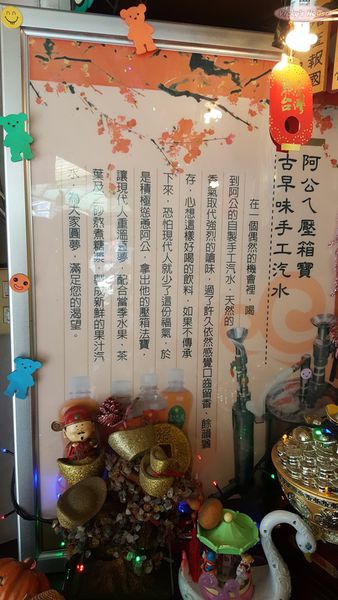 阿公ㄟ壓箱寶
古早味手工汽水
在一個偶然的機會裡，喝
到阿公的自製手工汽水，天然的
香氣取代強烈的嗆味，過了許久依然感覺口齒留香，餘韻猶
存，心想這樣好喝的飲料，如果不傳承
下來，恐怕現代人就少了這份福氣，於
是積極慫恿阿公，拿出他的壓箱法寶，
讓現代人重溫舊夢，配合當季水果、茶
葉及二砂熬煮糖漿，製成新鮮的果汁汽
水，為大家圓夢，滿足您的渴望。
報
國
台灣